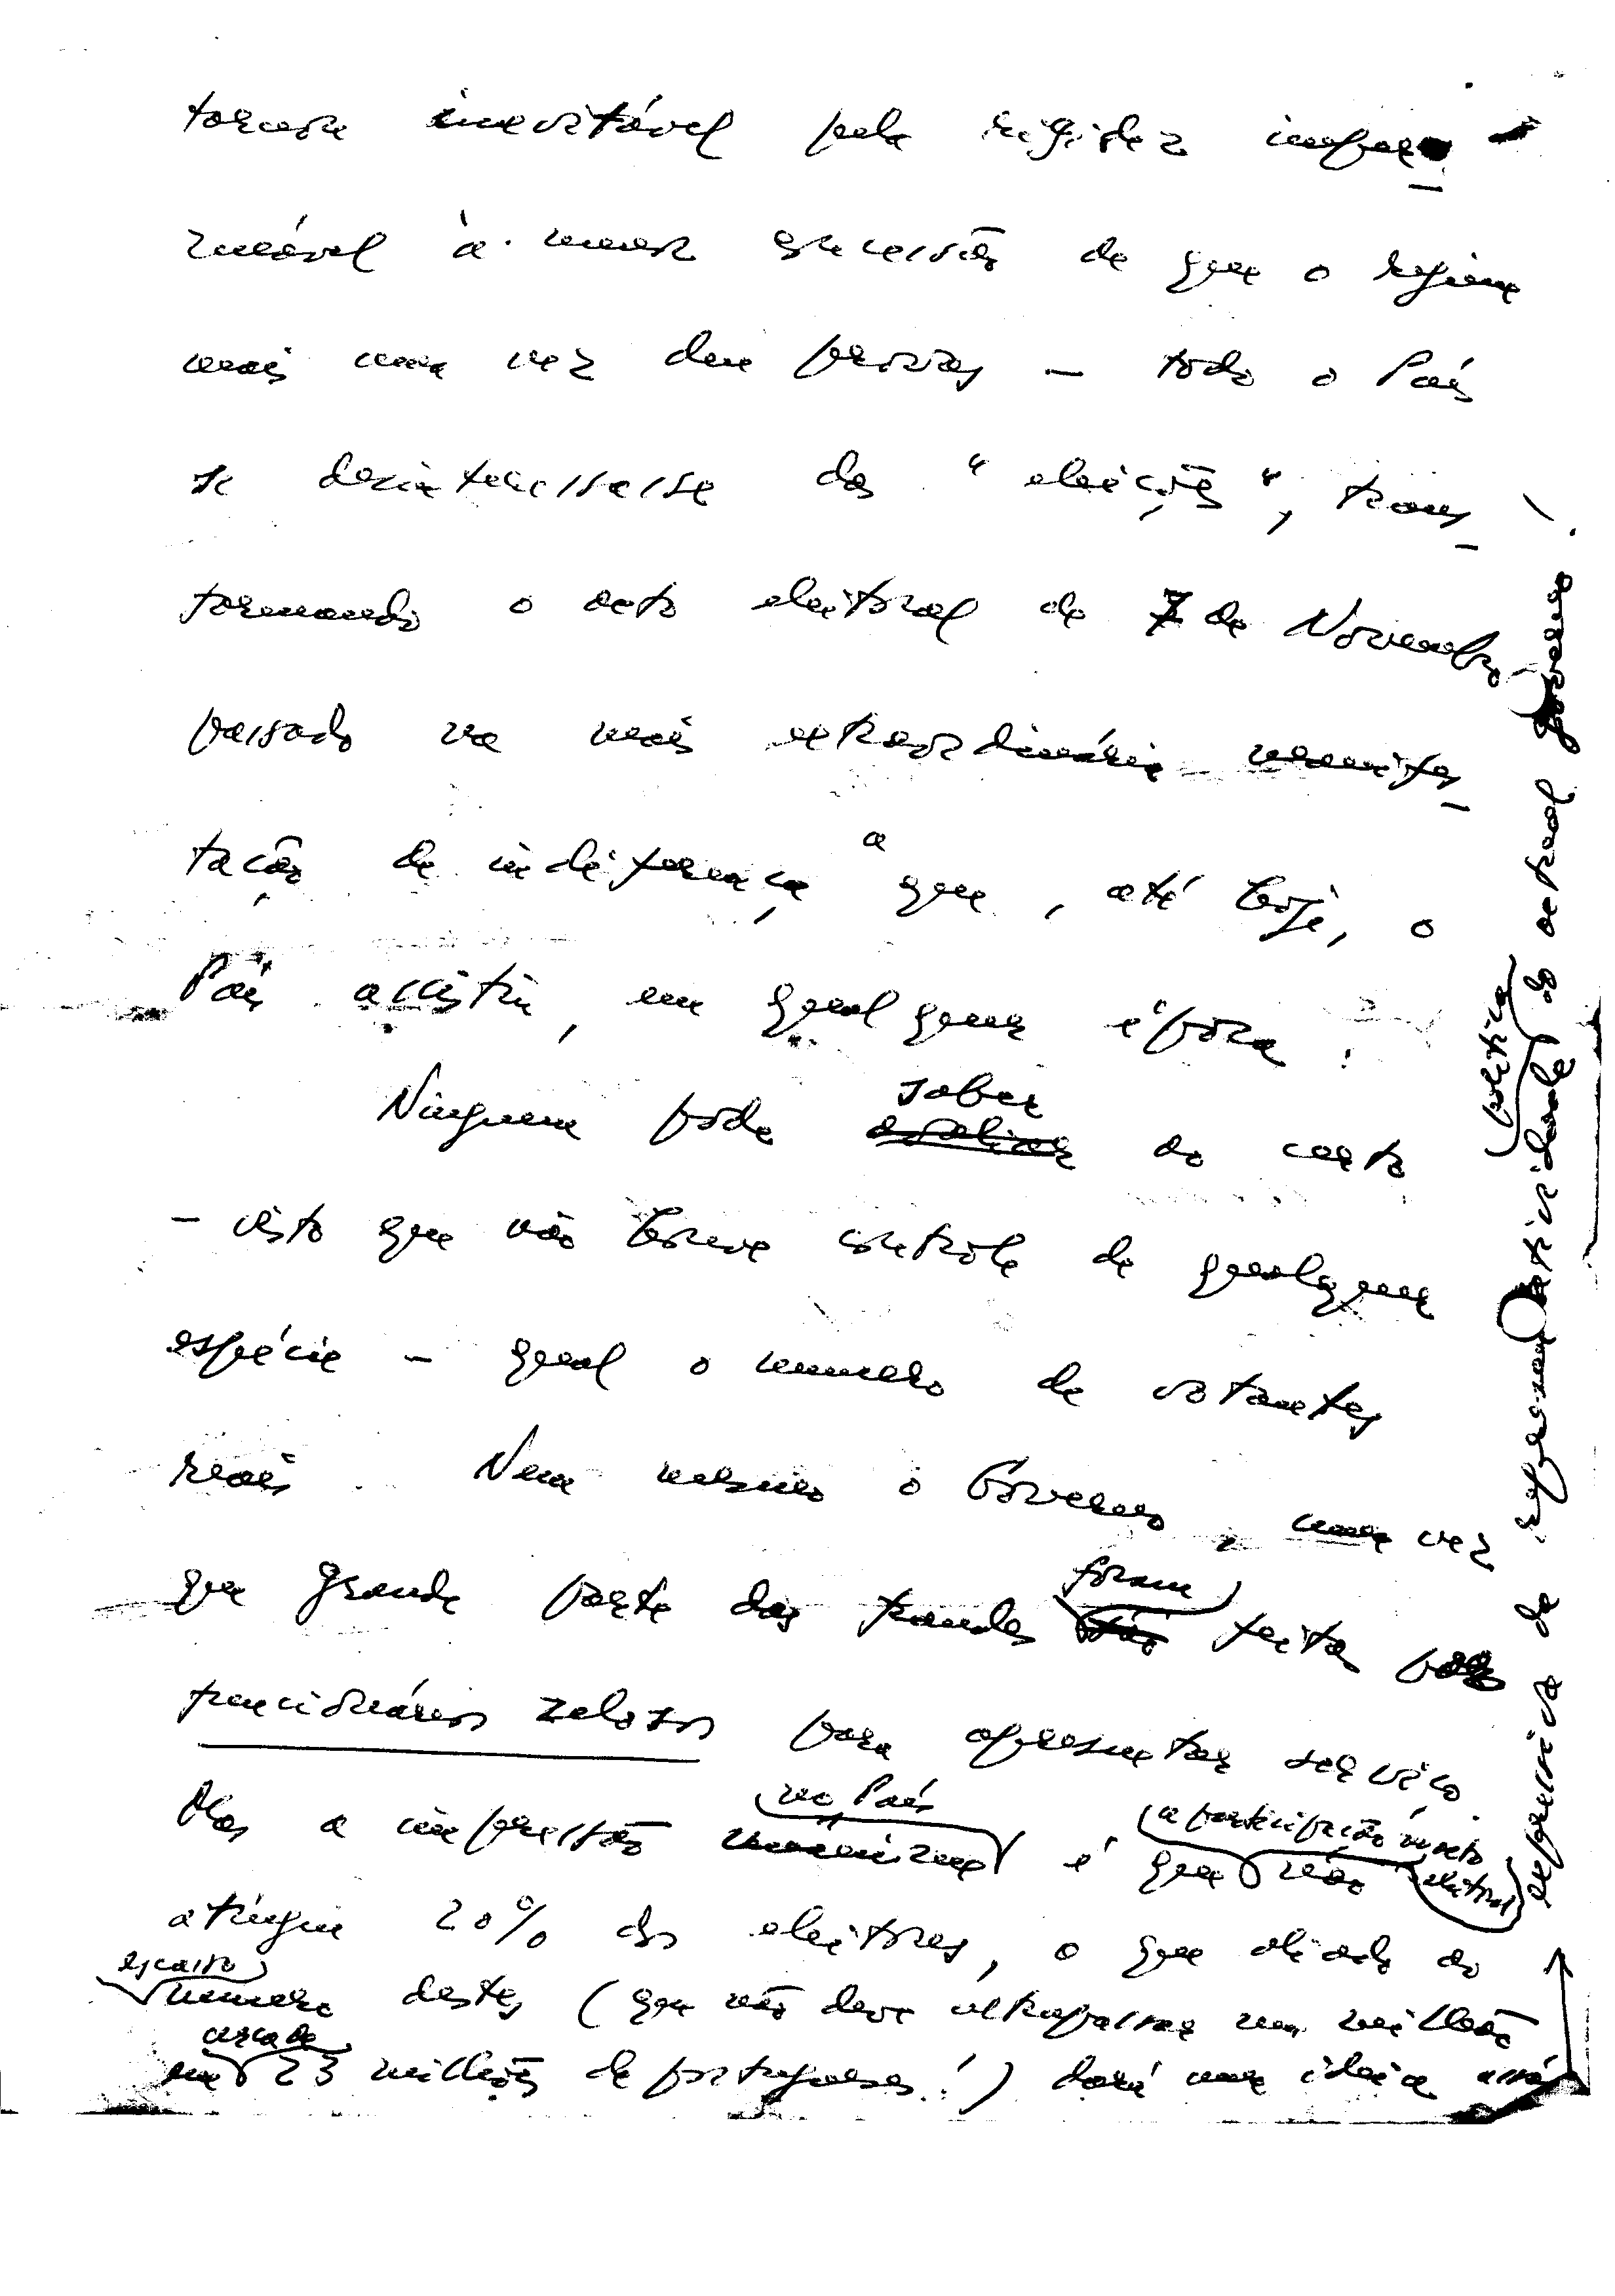 tornou inevitável pela rigidez imper-
meável à menor sucessão de que o regime
mais uma vez deu provas — todo o País
se desinteressasse das "eleições", trans-
formando o acto eleitoral de 7 de Novembro
passado na mais extraordinária manifes-
tação de indiferença a que, até hoje, o
País assistiu, em qualquer época.
Ninguem pode saber ao certo
— visto que não houve controle de qualquer
espécie — qual o numero de votantes
reais. Nem mesmo o Governo, uma vez
que grande parte das fraudes foram feitas por
funcionários zelosos para apresentar serviço.
Mas a impressão no País é que a participação no acto eleitoral não
atingiu 20% dos eleitores, o que aliado ao
escasso numero destes (que não deve ultrapassar um milhão
em cerca de 23 milhões de portugueses!) dará uma ideia assás
expressiva da representatividade política do actual governo!